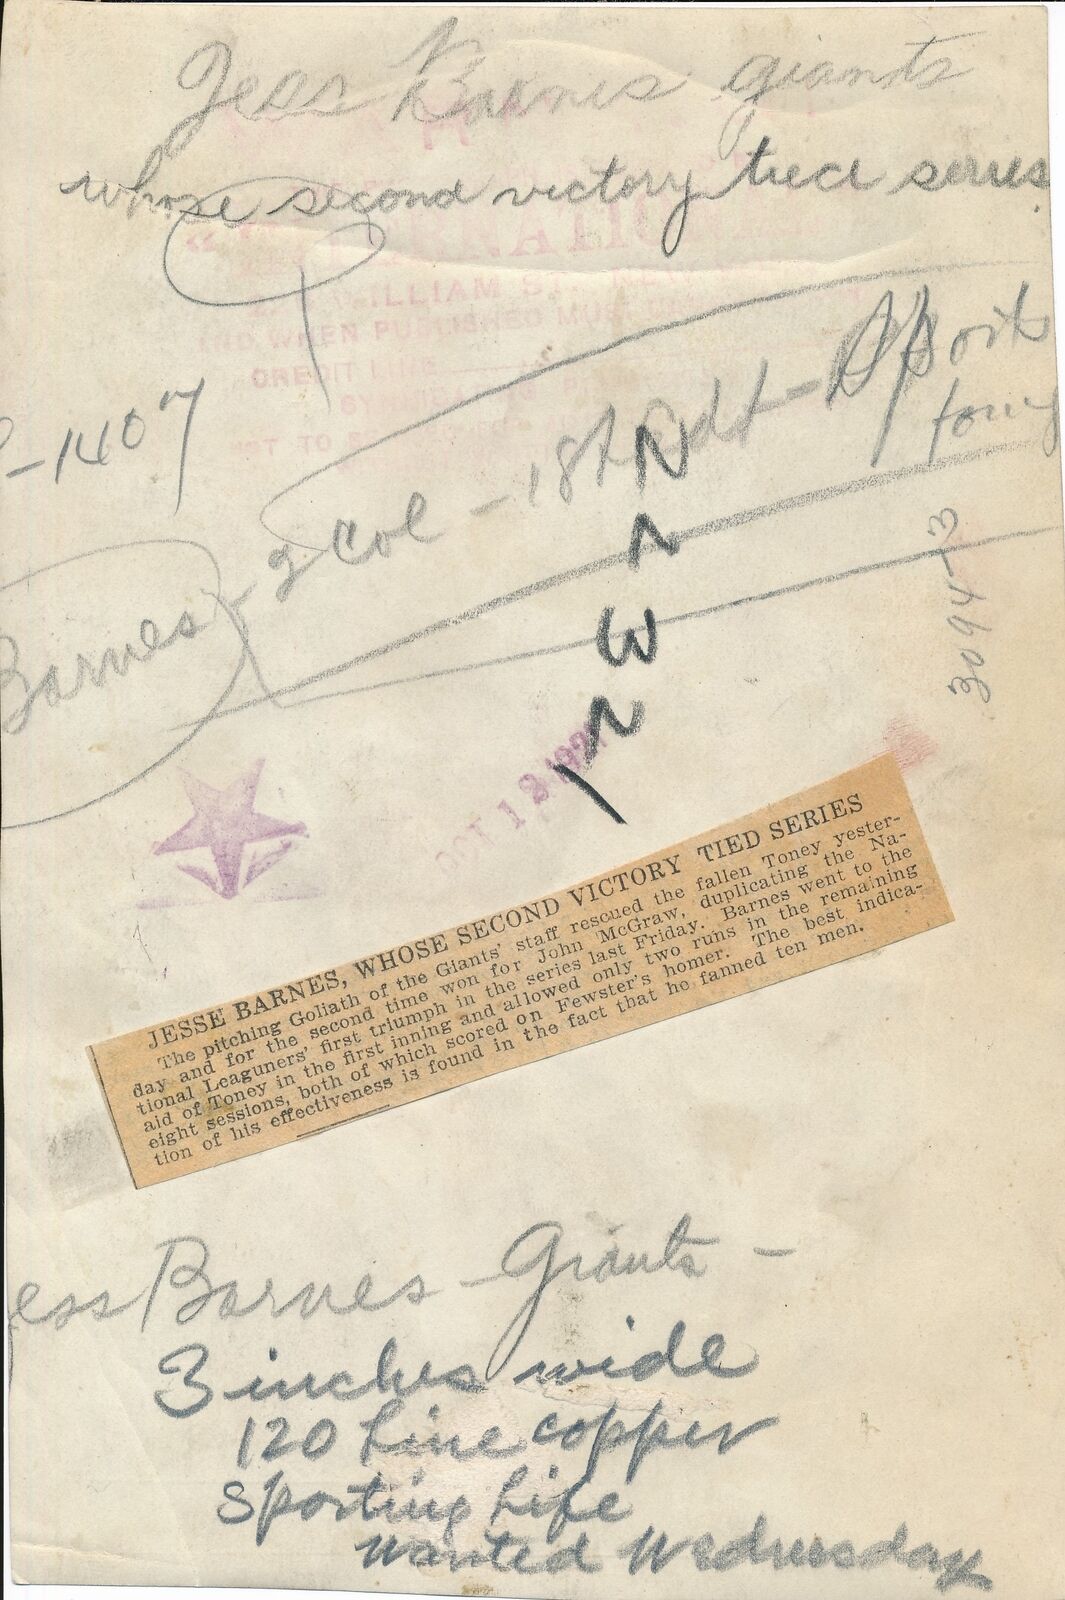 Jess Barnes giants
whose second victory tied series
INTERNATIONAL
WILLIAM ST. NEW
AND WHEN PUBLISHED MUST
CREDIT LINE
-1407
Barnes - 2 col - 18
30947-3
OCT 12 1921
JESSE BARNES, WHOSE SECOND VICTORY TIED SERIES
The pitching Goliath of the Giants' staff rescued the fallen Toney yester-
day and for the second time won for John McGraw, duplicating the Na-
tional Leaguners' first triumph in the series last Friday. Barnes went to the
aid of Toney in the first inning and allowed only two runs in the remaining
eight sessions, both of which scored on Fewster's homer. The best indica-
tion of his effectiveness is found in the fact that he fanned ten men.
ess Barnes - Giants -
3 inches wide
120 Line copper
Sporting Life
Wanted Wednesday